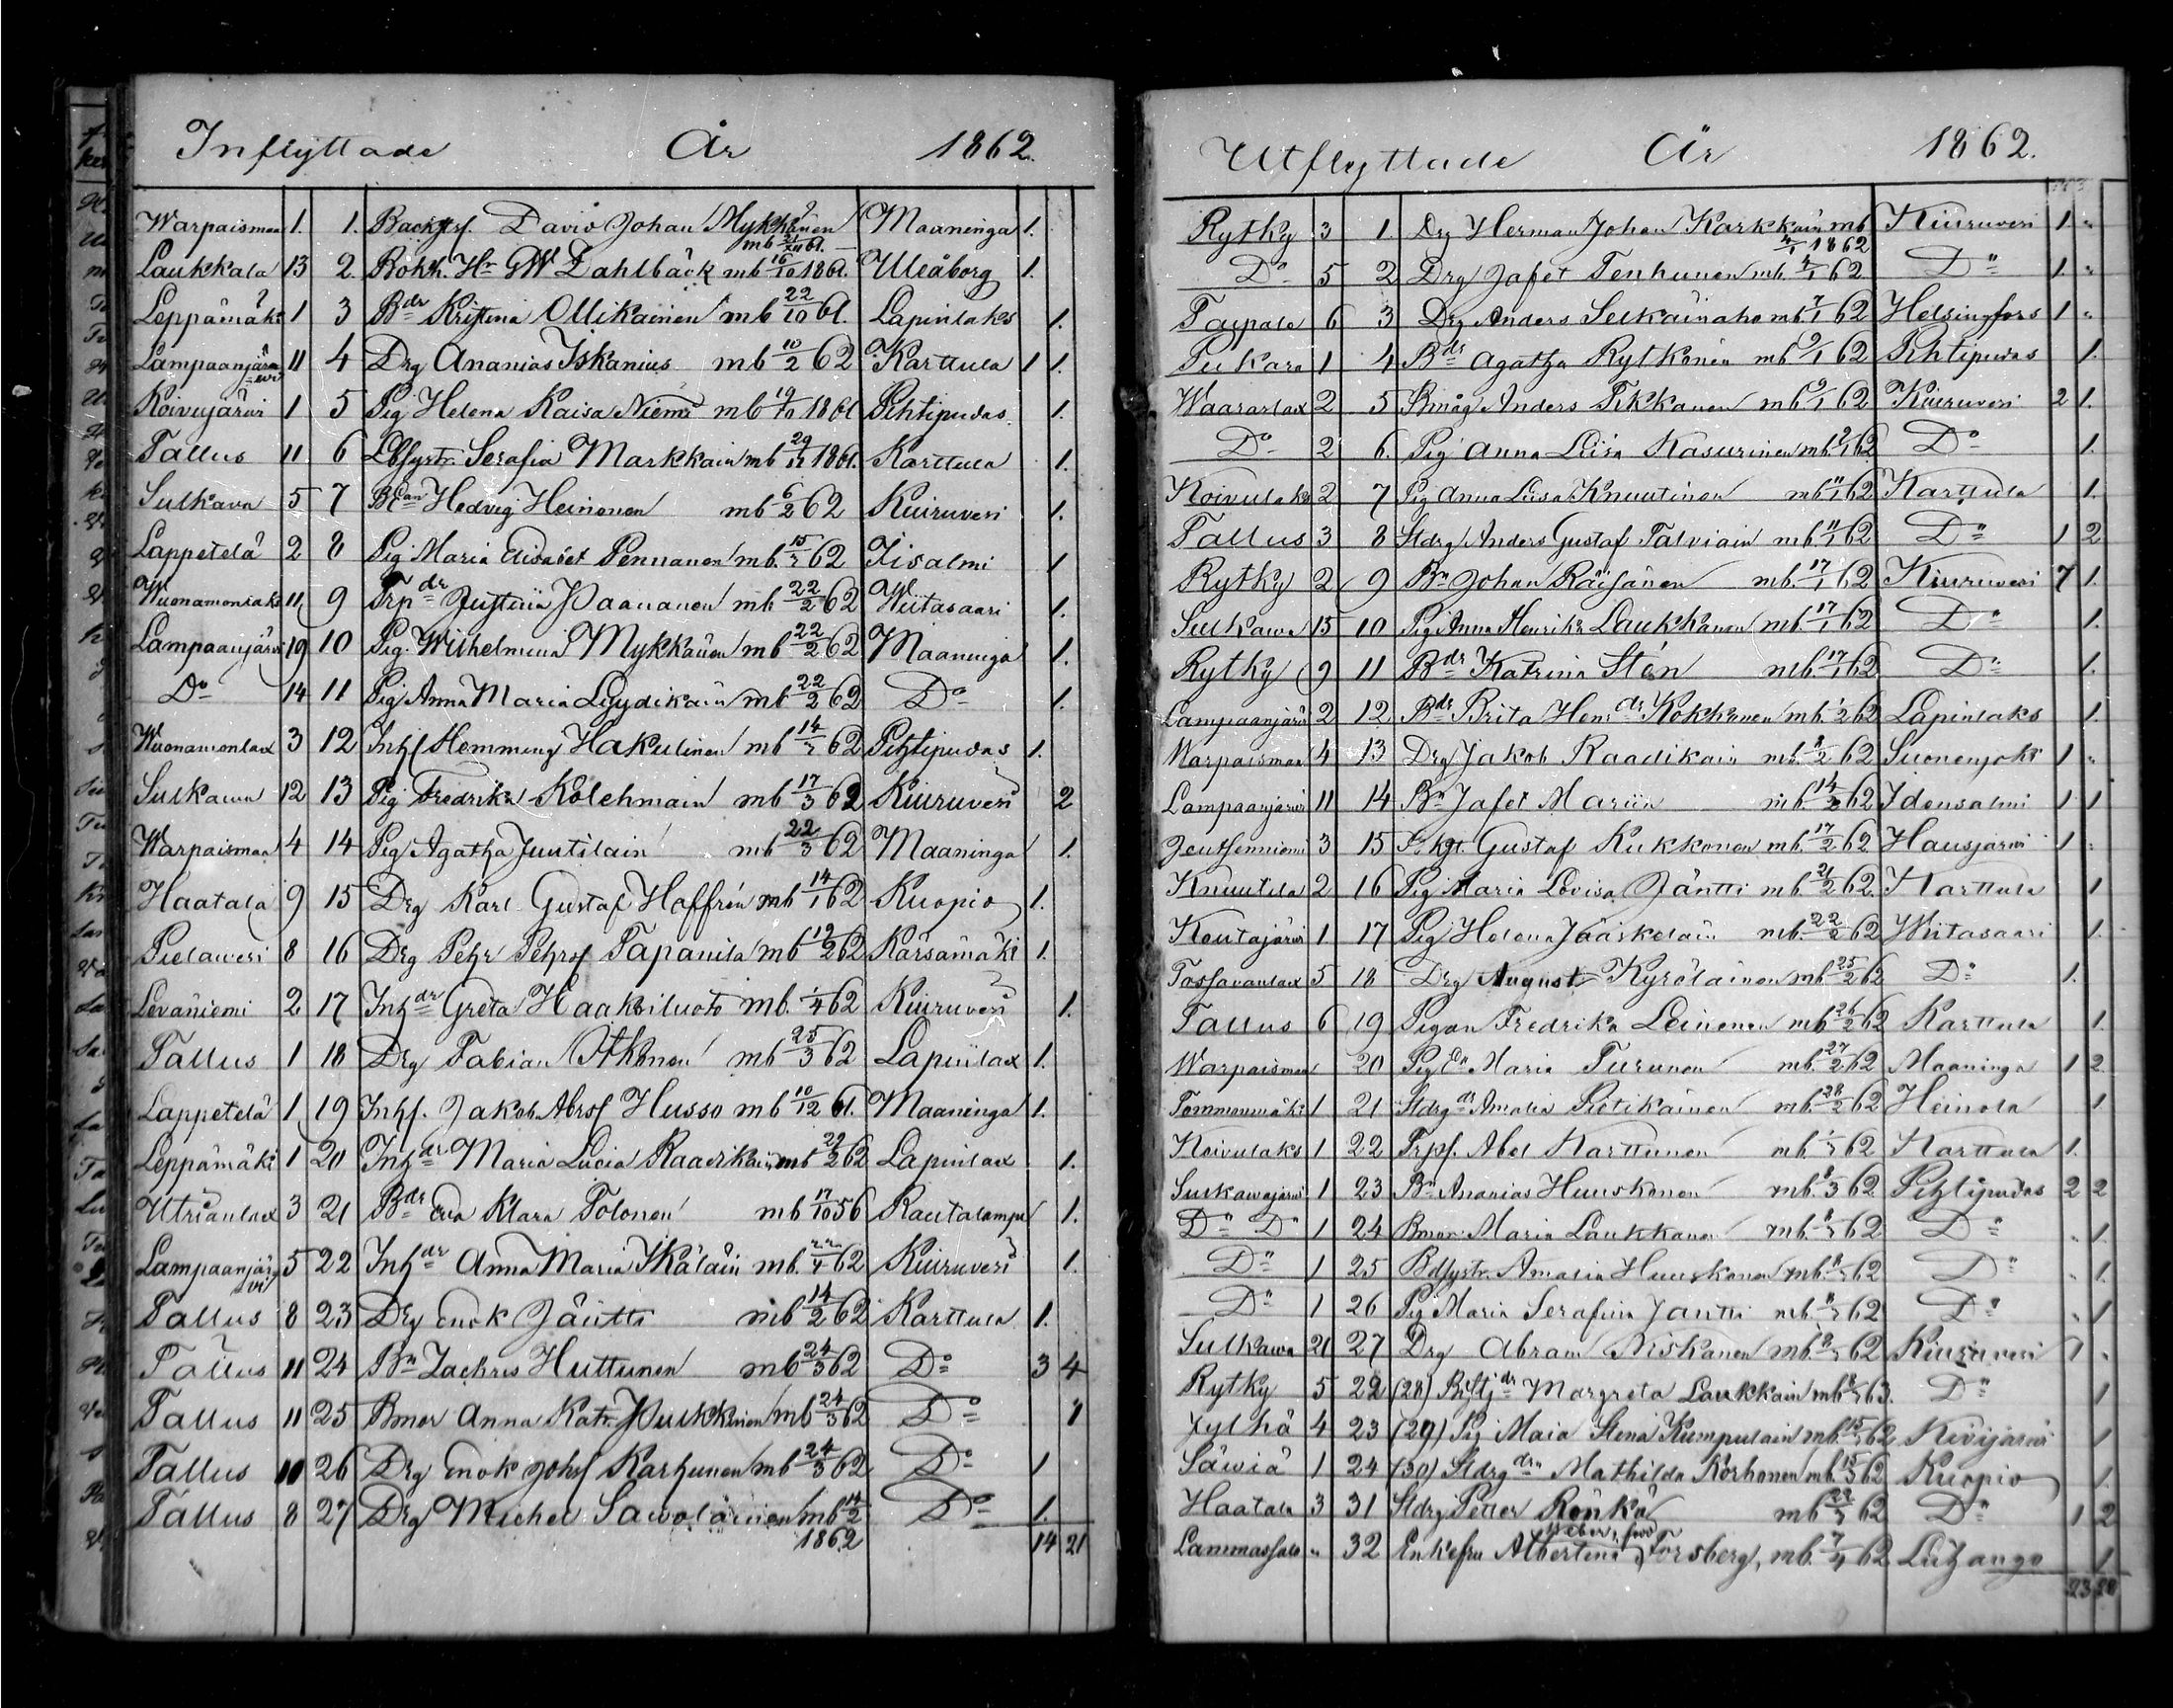 Inflyttade År 1862.
Warpaismaa 1. 1. Backstsf. David Johan Mykkänen Maaninga 1.
mb 21/XII 61.
Laukkala 13 2. Bokh. Hr GW Dahlbäck mb 16/10 1861. Uleåborg 1.
Leppämäki 1 3 Bdr Kristina Ollikainen mb 22/10 61. Lapinlaks 1.
Lampaanjärwi 11 4 Drg Ananias Iskanius mb 10/2 62 Karttula 1 1.
Koivujärvi 1 5 Pig Helena Kaisa Niemi mb 19/10 1861 Pihtipudas. 1.
Tallus 11 6 Serafia Markkain mb 29/12 1861. Karttula 1.
Sulkava 5 7 Hedvig Heinonen mb 6/2 62 Kiuruvesi 1.
Lappetelä 2 8 Pig Maria Elisabet Pennanen mb. 15/2 62 Iisalmi 1
Wuonamonlaks 11 9 Trpdr Justiina Paananen mb 22/2 62 Wiitasaari 1.
Lampaanjärvi 19 10 Pig. Wilhelmina Mykkänen mb 22/2 62 Maaninga 1.
Do 14 11 Pig Anna Maria Lyydikäin mb 22/2 62 Do 1.
Wuonamonlax 3 12 Inhs Hemming Hakulinen mb 14/3 62 Pihtipudas 1.
Sulkawa 12 13 Pig Fredrika Kolehmain mb 17/3 62 Kiuruvesi 2
Warpaismaa 4 14 Pig Agatha Juutilain mb 22/3 62 Maaninga 1.
Haatala 9 15 Drg Karl Gustaf Hoffrén mb 14/1 62 Kuopio 1.
Pielawesi 8 16 Drg Pehr Pehrsf Tapanila mb 19/2 62 Kärsämäki 1.
Leväniemi 2 17 Inhdr Greta Haaksiluoto mb. 1/4 62 Kiuruvesi 1.
Tallus 1 18 Drg Fabian Itkonen mb 25/3 62 Lapinlax 1.
Lappetelä 1 19 Inhs. Jakob Abrsf Husso mb 10/12 61. Maaninga 1.
Leppämäki 1 20 Inhdr Maria Lucia Raadikain mb 22/2 62 Lapinlax 1.
Utrianlax 3 21 Bdr Eva Klara Tolonen mb 17/10 56 Rautalampi 1.
Lampaanjärwi 5 22 Inhdr Anna Maria Ikäläin mb. 22/4 62 Kiuruvesi 1.
Tallus 8 23 Drg Enok Jäntti mb 14/2 62 Karttula 1.
Tallus 11 24 Bn Zachris Huttunen mb 24/3 62 Do 3 4
Tallus 11 25 Bmor Anna Katr. Pulkkinen mb 24/3 62 Do 1
Tallus 10 26 Drg Enok Johsf Karhunen mb 24/3 62 Do 1
Tallus 8 27 Drg Michel Sawolainen mb 14/2 Do 1.
1862 14 21
Utflyttade År 1862.
Rytky 3 1. Drg Herman Johan Karkkain mb Kiuruvesi 1. "
4/1 1862
Do 5 2 Drg Jafet Tenhunen mb. 4/1 62 Do 1. "
Taipale 6 3 Drg Anders Selkäinaho mb. 7/1 62 Helsingfors 1 "
Pukara 1 4 Bdr Agatha Rytkönen mb 9/1 62 Pihtipudas 1.
Waararlax 2 5 Bmåg Anders Tikkanen mb. 9/1 62 Kiuruvesi 2 1.
Do 2 6. Pig Anna Leisa Kasurinen mb. 9/1 62 Do 1.
Koivulaks 2 7 Pig Anna Liisa Knuutinen mb 11/1 62 Karttula 1.
Tallus 3 8 Stdrg Anders Gustaf Talviain mb. 11/1 62 Do 1 2
Rytky 2 9 Bn Johan Räisänen mb. 17/1 62 Kiuruvesi 7 1.
Sulkawa 15 10 Pig Anna Henrika Laukkanen mb. 17/1 62 Do 1.
Rytky 9 11 Bdr Katrina Stén mb. 17/1 62 Do 1.
Lampaanjärvi 2 12 Bdr Brita Hensdr Kokkonen mb. 1/2 62 Lapinlaks 1.
Warpaismaa 4 13 Drg Jakob Raadikain mb. 8/2 62 Suonenjoki 1 "
Lampaanjärvi 11 14 Bn Jafet Mariin mb 14/2 62 Idensalmi 1 1
3 15 Gustaf Kukkonen mb. 17/2 62 Hausjärvi 1 "
Knuutila 2 16 Pig Maria Lovisa Jäntti mb. 21/2 62. Karttula 1
Koutajärvi 1 17 Pig Helena Jääskeläin mb. 22/2 62 Witasaari 1.
Tossavanlax 5 18 Drg August Kyröläinen mb 25/2 62 Do 1.
Tallus 6 19 Pigan Fredrika Leinonen mb 26/2 62 Karttula 1.
Warpaismaa 20 Pig En Maria Turunen mb. 27/2 62 Maaninga 1 2
Tommonmäki 1 21 Stdrgdr Amalia Pietikäinen mb 28/2 62 Heinola 1
Koivulaks 1 22 Trpf. Abel Karttunen mb. 1/3 62 Karttula 1.
Sulkawajärvi 1 23 Bn Ananias Huuskonen mb. 8/3 62 Pihtipudas 2 2
Do Do 1 24 Bmor Maria Laukkanen mb. 8/3 62 Do " 1.
Do 1 25 Bdsystr. Amalia Huuskonen mb. 8/3 62 Do " 1.
Do 1 26 Pig Maria Serafina Jäntti mb. 8/3 62 Do " 1
Sulkawa 21 27 Drg Abram Niskanen mb. 8/3 62 Kiuruvesi 1 "
Rytky 5 22 (28) Margreta Laukkain mb 8/3 63. Do 1
Sylhä 4 23 (29) Pig Maia Stena Kumpulain mb. 15/3 62 Kivijärvi 1
Säwiä 1 24 (30) Stdrgdr Mathilda Korhonen mb. 15/3 62 Kuopio 1.
Haatala 3 31 Stdrg Petter Rönkä mb 22/3 62 Do 1 2
Lammassalo " 32 Enkefru Albertina Forsberg, mb. 7/4 62 1
23 28